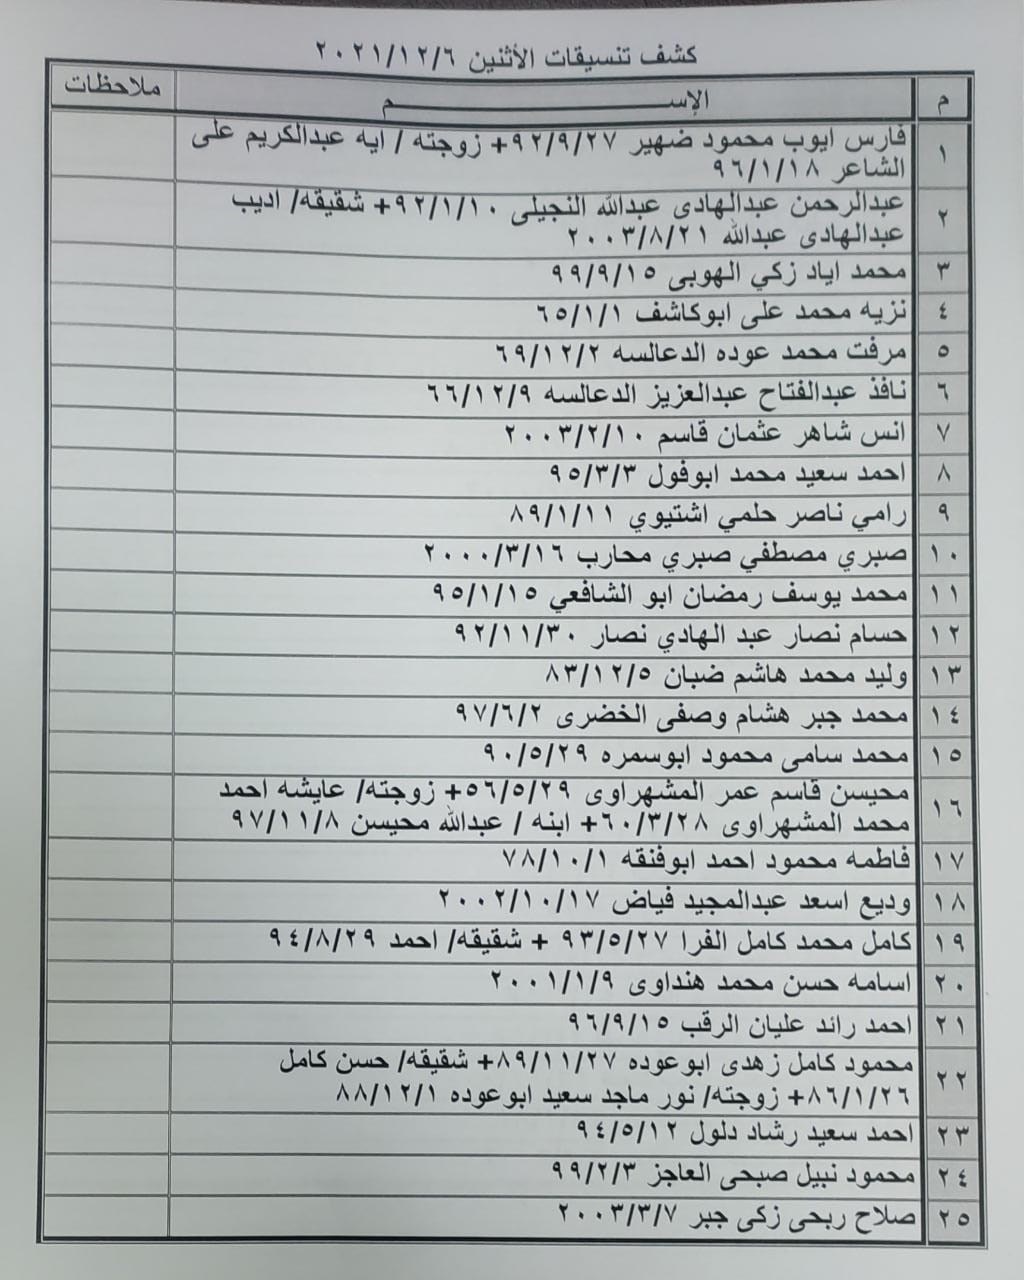 كشف تنسيقات الأثنين ٢٠٢١/١٢/٦
م الإســـــــــــــم ملاحظات
١ فارس ايوب محمود ضهير ٩٢/٩/٢٧+ زوجته / ايه عبدالكريم على
الشاعر ٩٦/١/١٨
٢ عبدالرحمن عبدالهادى عبدالله النجيلى ٩٢/١/١٠+ شقيقه/ اديب
عبدالهادى عبدالله ٢٠٠٣/٨/٢١
٣ محمد اياد زكي الهوبى ٩٩/٩/١٥
٤ نزيه محمد على ابوكاشف ٦٥/١/١
٥ مرفت محمد عوده الدعالسه ٦٩/١٢/٢
٦ نافذ عبدالفتاح عبدالعزيز الدعالسه ٦٦/١٢/٩
٧ انس شاهر عثمان قاسم ٢٠٠٣/٢/١٠
٨ احمد سعيد محمد ابوفول ٩٥/٣/٣
٩ رامي ناصر حلمي اشتيوي ٨٩/١/١١
١٠ صبري مصطفي صبري محارب ٢٠٠٠/٣/١٦
١١ محمد يوسف رمضان ابو الشافعي ٩٥/١/١٥
١٢ حسام نصار عبد الهادي نصار ٩٢/١١/٣٠
١٣ وليد محمد هاشم ضبان ٨٣/١٢/٥
١٤ محمد جبر هشام وصفى الخضرى ٩٧/٦/٢
١٥ محمد سامى محمود ابوسمره ٩٠/٥/٢٩
١٦ محيسن قاسم عمر المشهراوى ٥٦/٥/٢٩+ زوجته/ عايشه احمد
محمد المشهراوى ٦٠/٣/٢٨+ ابنه / عبدالله محيسن ٩٧/١١/٨
١٧ فاطمه محمود احمد ابوفنقه ٧٨/١٠/١
١٨ وديع اسعد عبدالمجيد فياض ٢٠٠٢/١٠/١٧
١٩ كامل محمد كامل الفرا ٩٣/٥/٢٧ + شقيقه/ احمد ٩٤/٨/٢٩
٢٠ اسامه حسن محمد هنداوى ٢٠٠١/١/٩
٢١ احمد رائد عليان الرقب ٩٦/٩/١٥
٢٢ محمود كامل زهدى ابوعوده ٨٩/١١/٢٧+ شقيقه/ حسن كامل
٨٦/١/٢٦+ زوجته/ نور ماجد سعيد ابوعوده ٨٨/١٢/١
٢٣ احمد سعيد رشاد دلول ٩٤/٥/١٢
٢٤ محمود نبيل صبحى العاجز ٩٩/٢/٣
٢٥ صلاح ربحى زكى جبر ٢٠٠٣/٣/٧